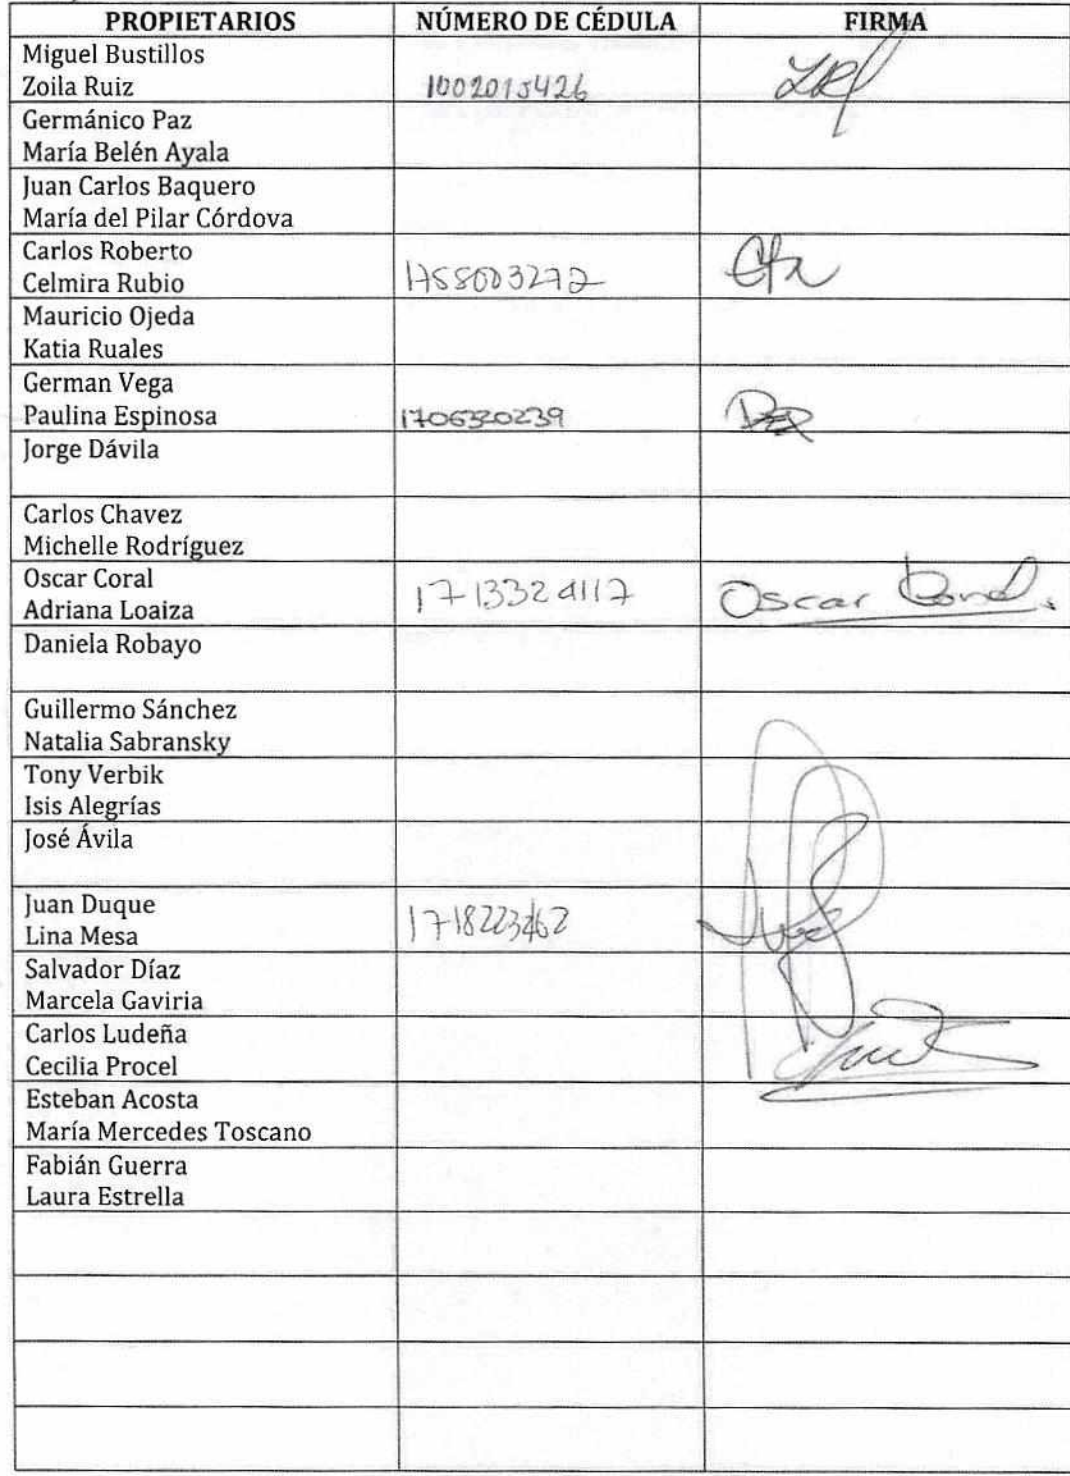 PROPIETARIOS NÚMERO DE CÉDULA FIRMA
Miguel Bustillos
Zoila Ruiz 1002015426
Germánico Paz
María Belén Ayala
Juan Carlos Baquero
María del Pilar Córdova
Carlos Roberto
Celmira Rubio 1758003272
Mauricio Ojeda
Katia Ruales
German Vega
Paulina Espinosa 1706320239
Jorge Dávila
Carlos Chavez
Michelle Rodríguez
Oscar Coral 1713324117 Oscar Coral.
Adriana Loaiza
Daniela Robayo
Guillermo Sánchez
Natalia Sabransky
Tony Verbik
Isis Alegrías
José Ávila
Juan Duque 1718223462
Lina Mesa
Salvador Díaz
Marcela Gaviria
Carlos Ludeña
Cecilia Procel
Esteban Acosta
María Mercedes Toscano
Fabián Guerra
Laura Estrella